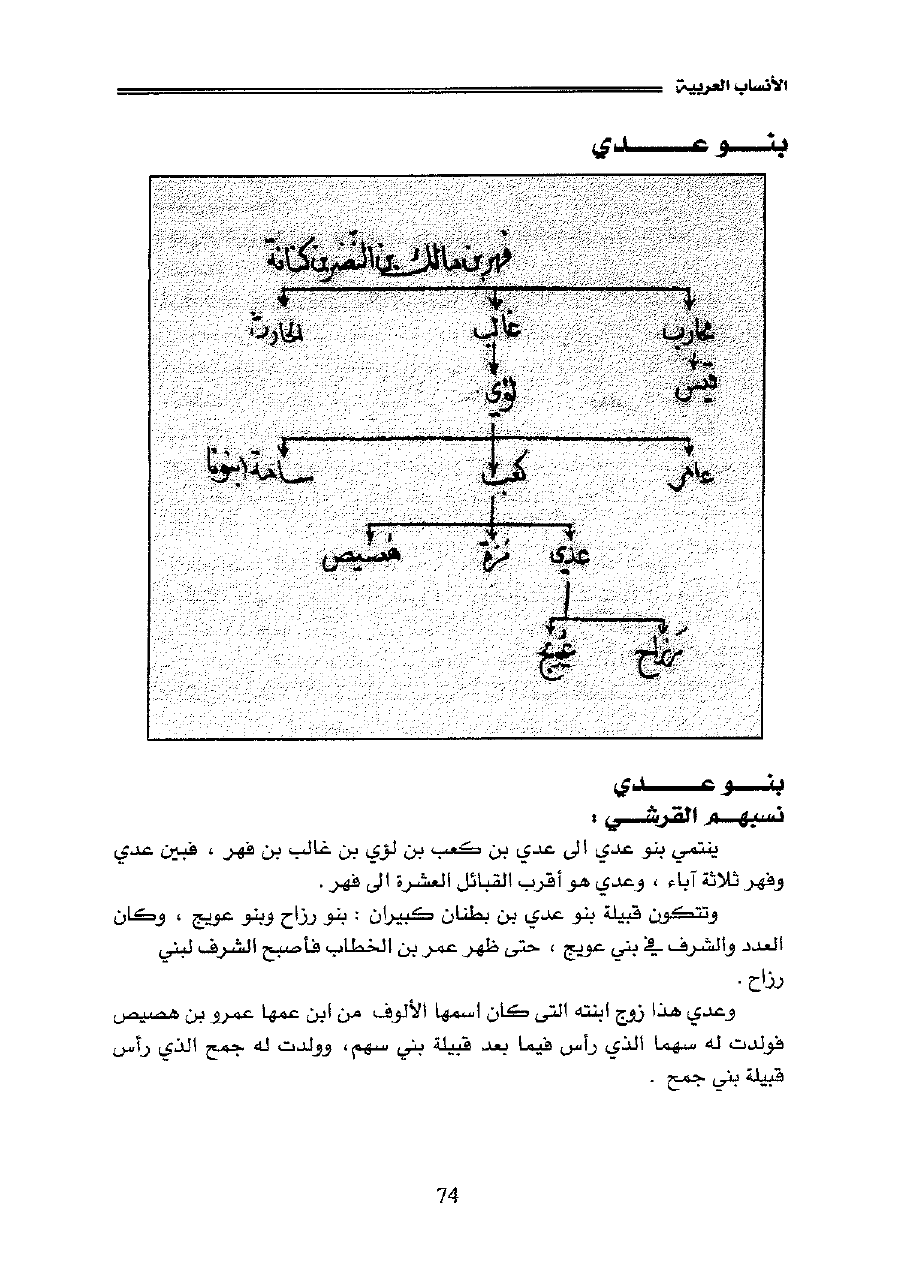 الأنساب العربية
بنو عدي
فهر بن مالك بن النضر بن كنانة
محارب غالب الحارث
قيس لؤي
عامر كعب سامة ابنونا
عدي مرة هصيص
رزاح عويج
بنو عدي
نسبهم القرشي :
ينتمي بنو عدي الى عدي بن كعب بن لؤي بن غالب بن فهر ، فبين عدي
وفهر ثلاثة آباء ، وعدي هو أقرب القبائل العشرة الى فهر .
وتتكون قبيلة بنو عدي بن بطنان كبيران : بنو رزاح وبنو عويج ، وكان
العدد والشرف في بني عويج ، حتى ظهر عمر بن الخطاب فأصبح الشرف لبني
رزاح .
وعدي هذا زوج ابنته التى كان اسمها الألوف من ابن عمها عمرو بن هصيص
فولدت له سهما الذي رأس فيما بعد قبيلة بني سهم، وولدت له جمح الذي رأس
قبيلة بني جمح .
74